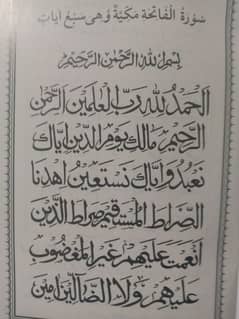 سُورَةُ الْفَاتِحَةِ مَكِّيَّةٌ وَهِيَ سَبْعُ آيَاتٍ
بِسْمِ اللهِ الرَّحْمٰنِ الرَّحِيْمِ
اَلْحَمْدُ لِلّٰهِ رَبِّ الْعٰلَمِيْنَ الرَّحْمٰنِ
الرَّحِيْمِ مَالِكِ يَوْمِ الدِّيْنِ اِيَّاكَ
نَعْبُدُ وَاِيَّاكَ نَسْتَعِيْنُ اِهْدِنَا
الصِّرَاطَ الْمُسْتَقِيْمَ صِرَاطَ الَّذِيْنَ
اَنْعَمْتَ عَلَيْهِمْ غَيْرِ الْمَغْضُوْبِ
عَلَيْهِمْ وَلَا الضَّالِّيْنَ اٰمِيْنَ